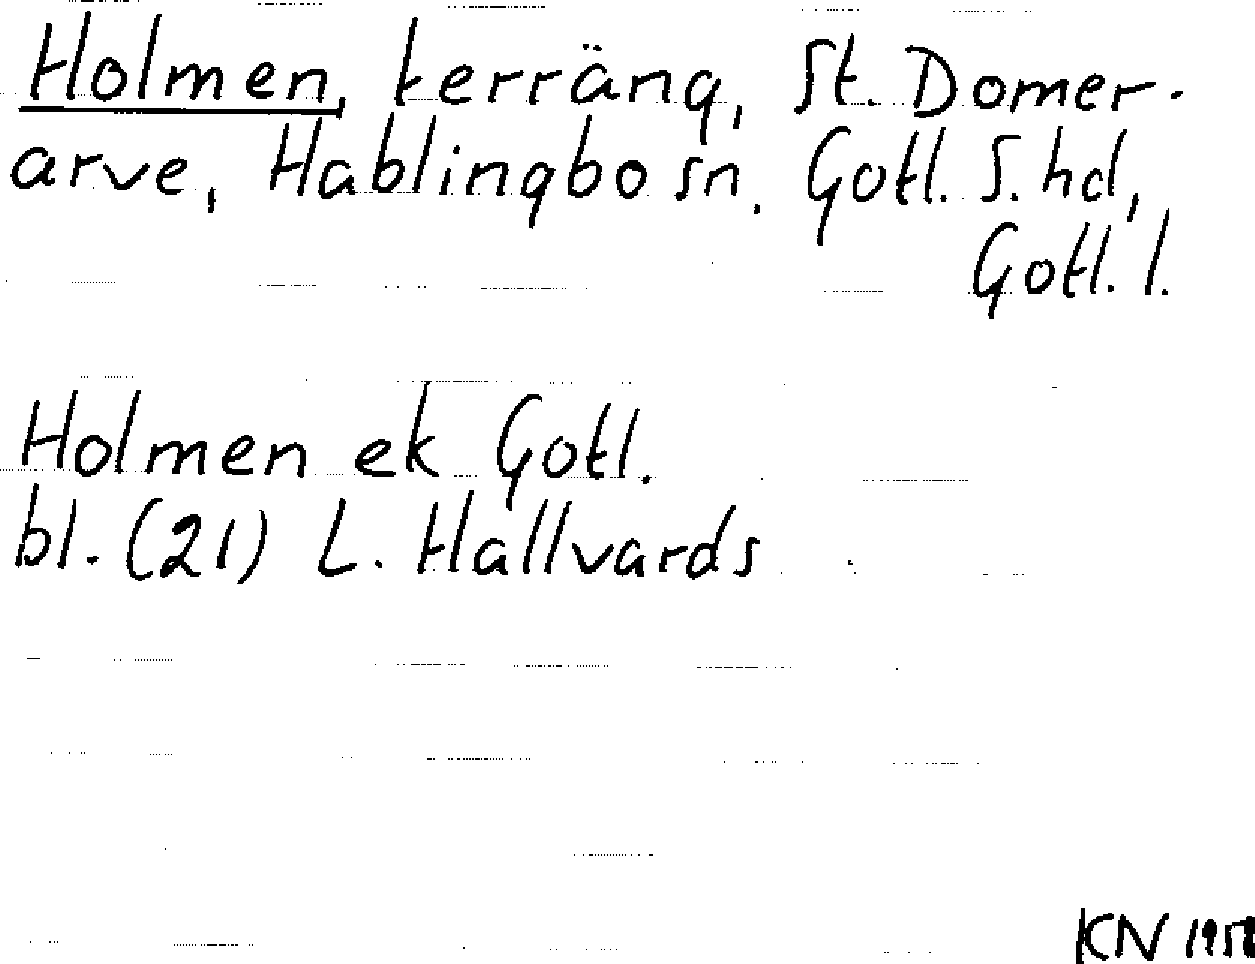 Holmen, terräng, St. Domer-
arve, Hablingbo sn. Gotl. S. hd,
Gotl. l.
Holmen ek Gotl.
bl. (21) L. Hallvards
KN